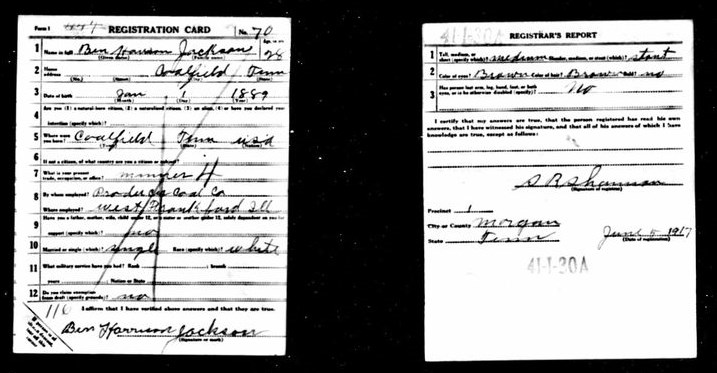 Form 1 REGISTRATION CARD No. 70
1 Name in full Ben Harrison Jackson Age, in yrs. 28
(Given name) (Family name)
2 Home address Coalfield Tenn
(No.) (Street) (City) (State)
3 Date of birth Jan 1 1889
(Month) (Day) (Year)
4 Are you (1) a natural-born citizen, (2) a naturalized citizen, (3) an alien, (4) or have you declared your
intention (specify which)?
5 Where were you born? Coalfield Tenn usa
(Town) (State) (Nation)
6 If not a citizen, of what country are you a citizen or subject?
7 What is your present trade, occupation, or office? miner
8 By whom employed? Coal Co
Where employed? West Frankford Ill
9 Have you a father, mother, wife, child under 12, or a sister or brother under 12, solely dependent on you for
support (specify which)? no
10 Married or single (which)? single Race (specify which)? white
11 What military service have you had? Rank ; branch
years ; Nation or State
12 Do you claim exemption from draft (specify grounds)? no
116 I affirm that I have verified above answers and that they are true.
Ben Harrison Jackson
(Signature or mark)
41-1-30A
REGISTRAR'S REPORT
1 Tall, medium, or short (specify which)? medium Slender, medium, or stout (which)? stout
2 Color of eyes? Brown Color of hair? Brown Bald? no
3 Has person lost arm, leg, hand, foot, or both eyes, or is he otherwise disabled (specify)? No
I certify that my answers are true, that the person registered has read his own
answers, that I have witnessed his signature, and that all of his answers of which I have
knowledge are true, except as follows:
(Signature of registrar)
Precinct 1
City or County Morgan
State Tenn June 5 1917
(Date of registration)
41-1-30A